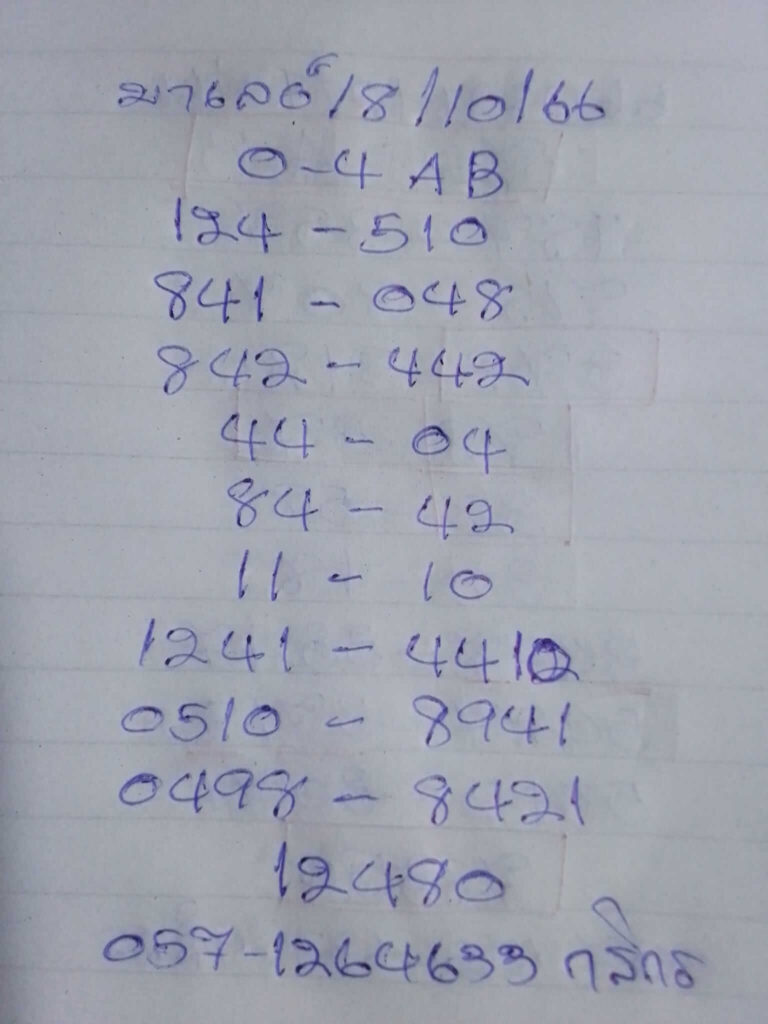 มาเลย์/8/10/66
0-4 AB
124-510
841-048
842-442
44-04
84-42
11-10
1241-4412
0510-8941
0498-8421
12480
057-1264633 กสิกร